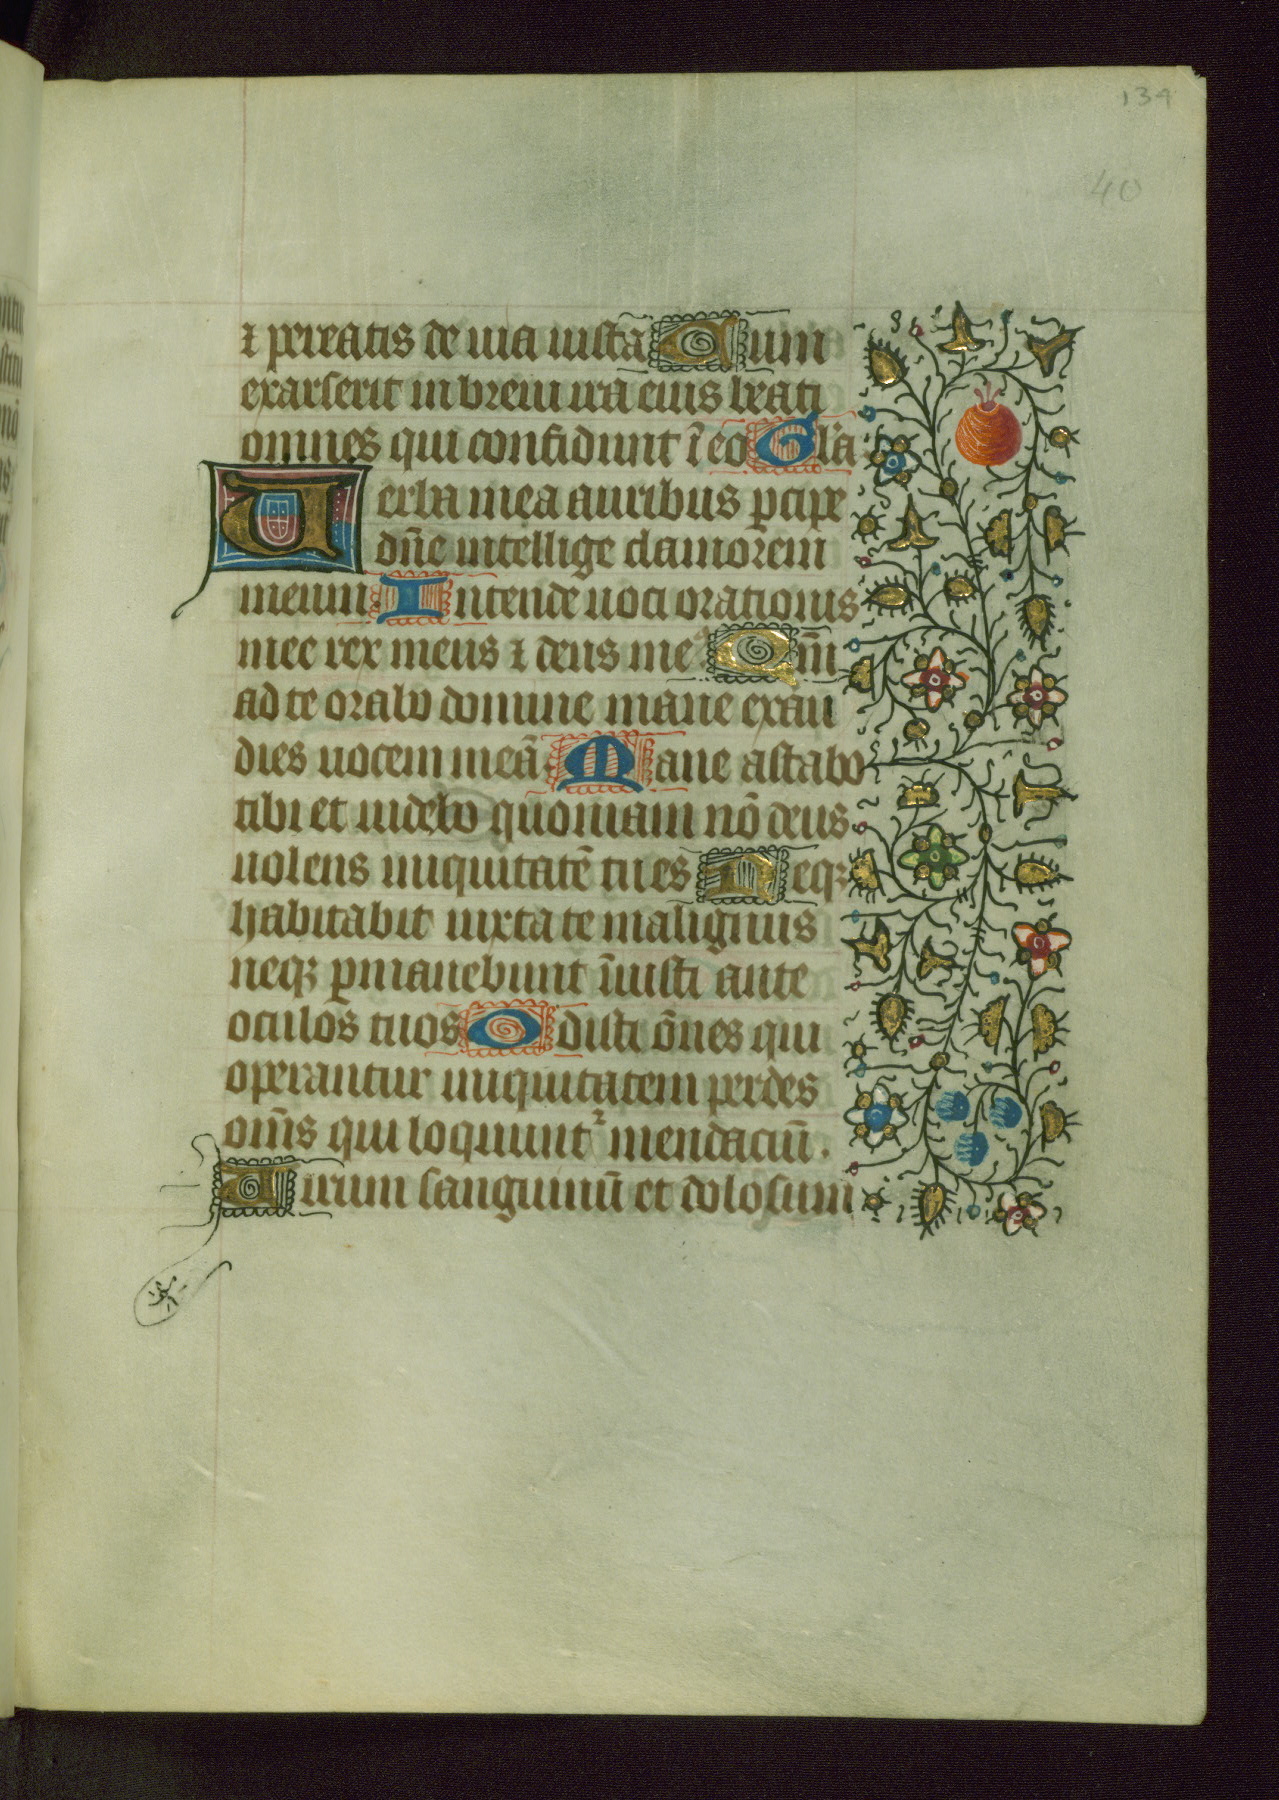 134
40
⁊ pereatis de uia iusta Cum
exarserit in breui ira eius beati
omnes qui confidunt ī eo Gl'a
Uerba mea auribus ꝑcipe
dn̄e intellige clamorem
meum Intende uoci orationis
mee rex meus ⁊ deus meꝰ Qm̄
ad te orabo domine mane exau
dies uocem meā Mane astabo
tibi et uidebo quoniam nō deus
uolens iniquitatē tu es Neqꝫ
habitabit iuxta te malignus
neqꝫ ꝑmanebunt īiusti ante
oculos tuos Odisti ōnes qui
operantur iniquitatem perdes
om̄s qui loquunt᷑ mendaciū.
Uirum sanguinū et dolosum